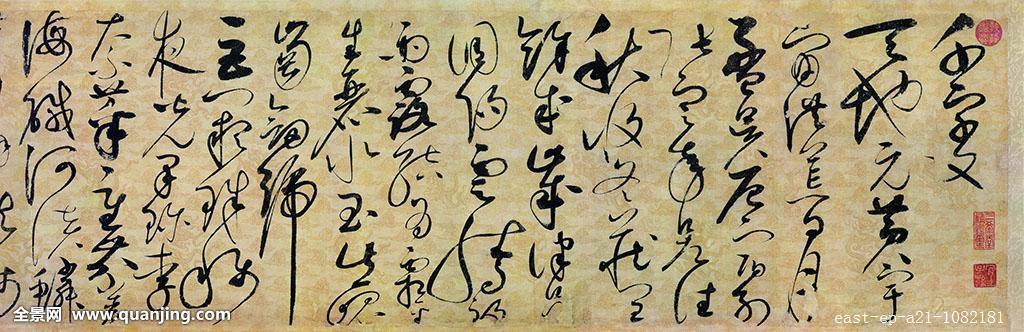 千字文
天地元黄宇
宙洪荒日月
盈昃辰宿列
張寒來暑往
秋收冬藏閏
餘成歲律吕
調陽雲騰致
雨露結為霜金
生麗水玉出崑
岡劍號
巨闕珠稱
夜光果珍李
柰菜重芥薑
海鹹河淡鱗
全景网 www.quanjing.com
east-ep-a21-1082181